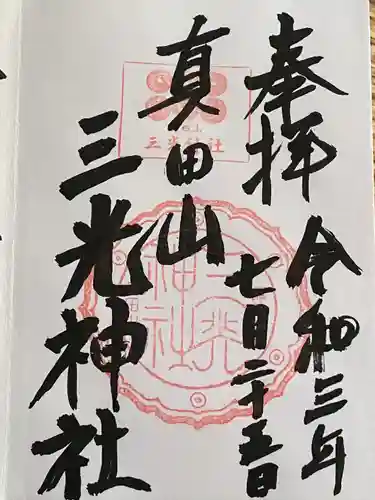 奉拝
令和三年
七月二十五日
真田山
三光神社
三光神社
三光神社